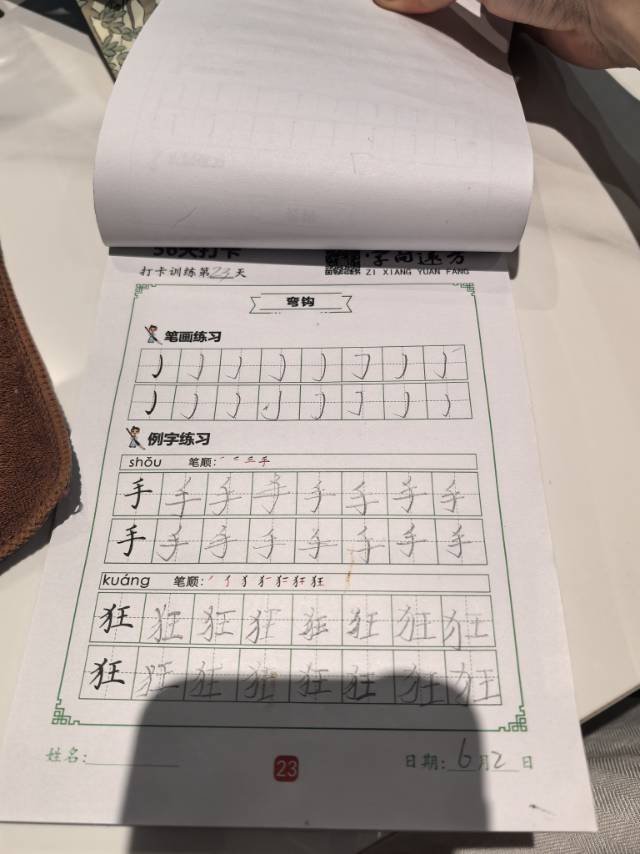 36天打卡
打卡训练第23天
字向远方
ZI XIANG YUAN FANG
弯钩
笔画练习
例字练习
shǒu 笔顺:
手 手 手 手 手 手 手 手
手 手 手 手 手 手 手 手
kuáng 笔顺:
狂 狂 狂 狂 狂 狂 狂 狂
狂 狂 狂 狂 狂 狂 狂 狂
姓名: 23 日期: 6月2日